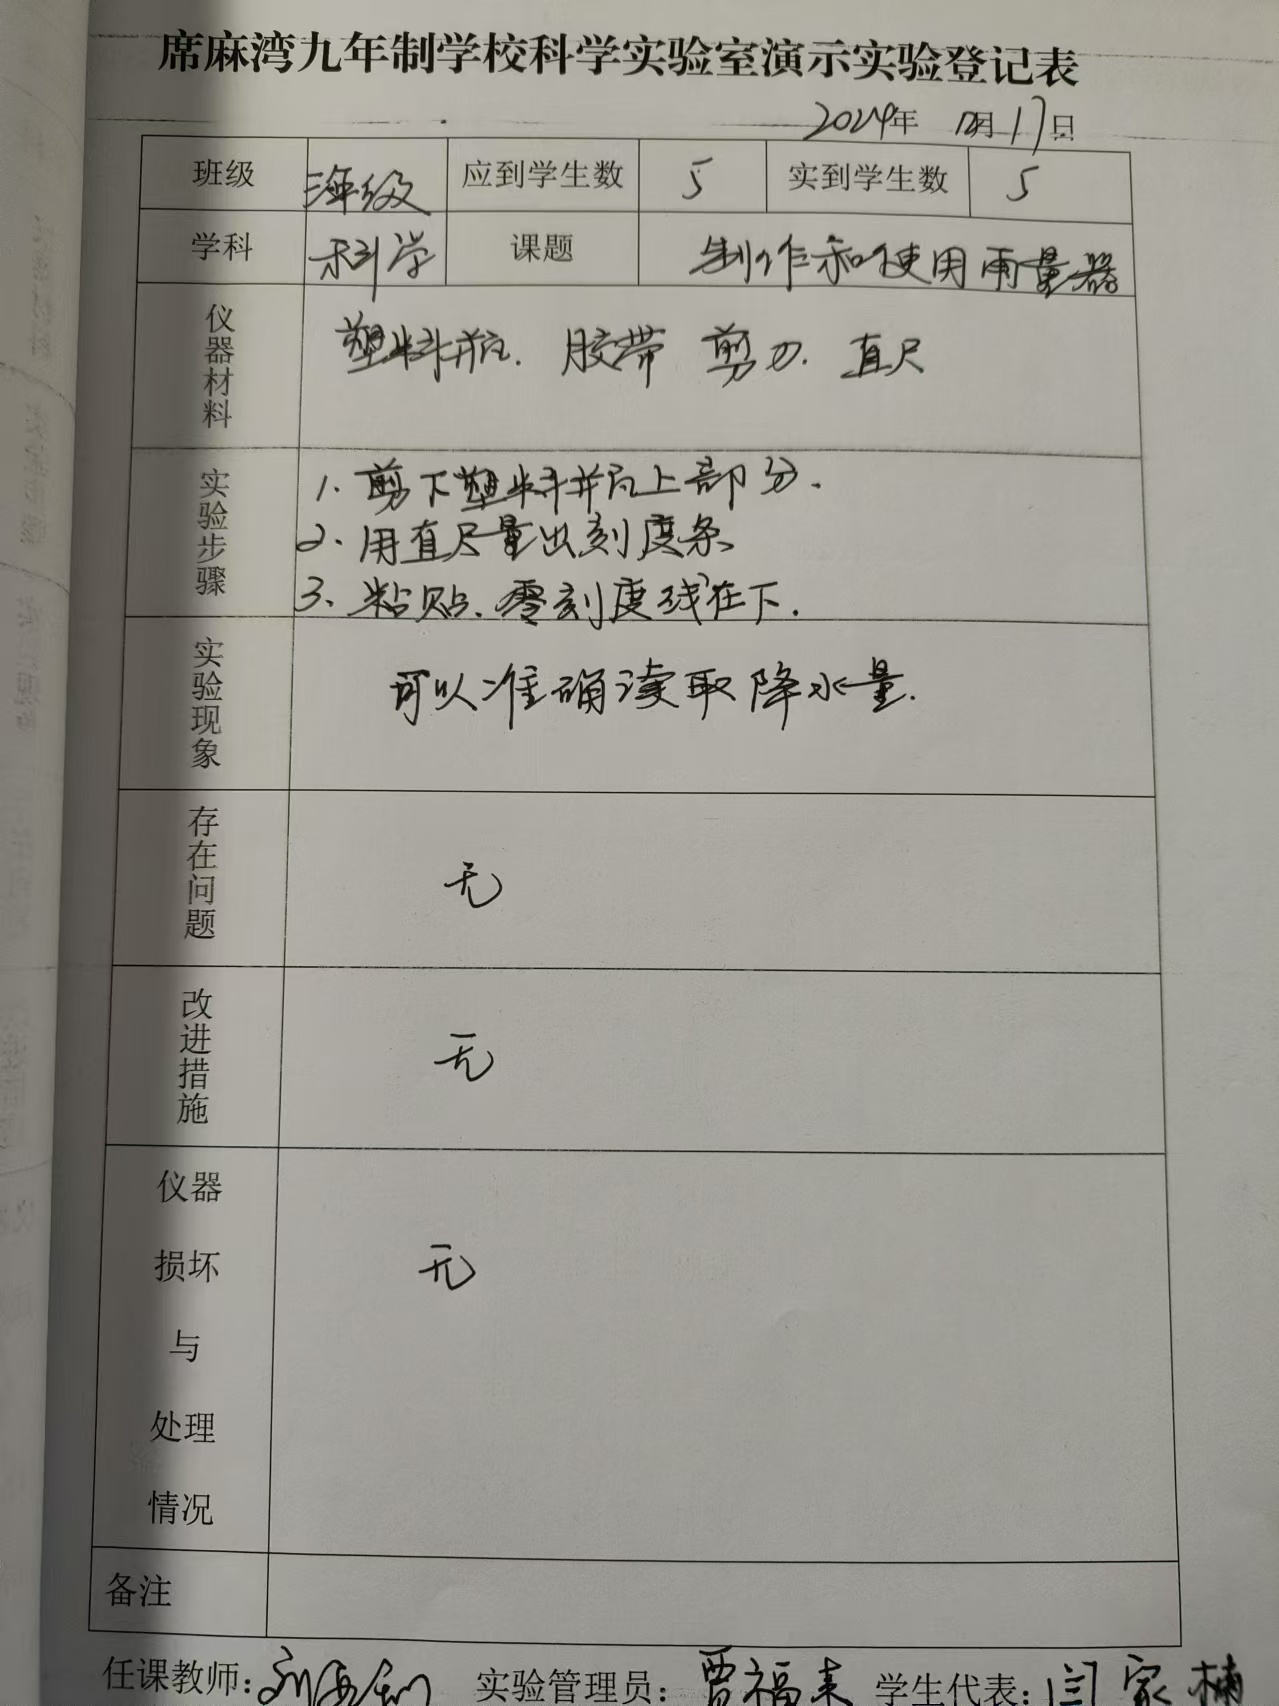 席麻湾九年制学校科学实验室演示实验登记表
2024年 12月17日
班级 三年级 应到学生数 5 实到学生数 5
学科 科学 课题 制作和使用雨量器
仪器材料 塑料瓶. 胶带 剪刀. 直尺
实验步骤 1. 剪下塑料瓶上部分.
2. 用直尺量出刻度条
3. 粘贴. 零刻度线在下.
实验现象 可以准确读取降水量.
存在问题 无
改进措施 无
仪器
损坏 无
与
处理
情况
备注
任课教师: 实验管理员: 贾福来 学生代表: 闫家楠